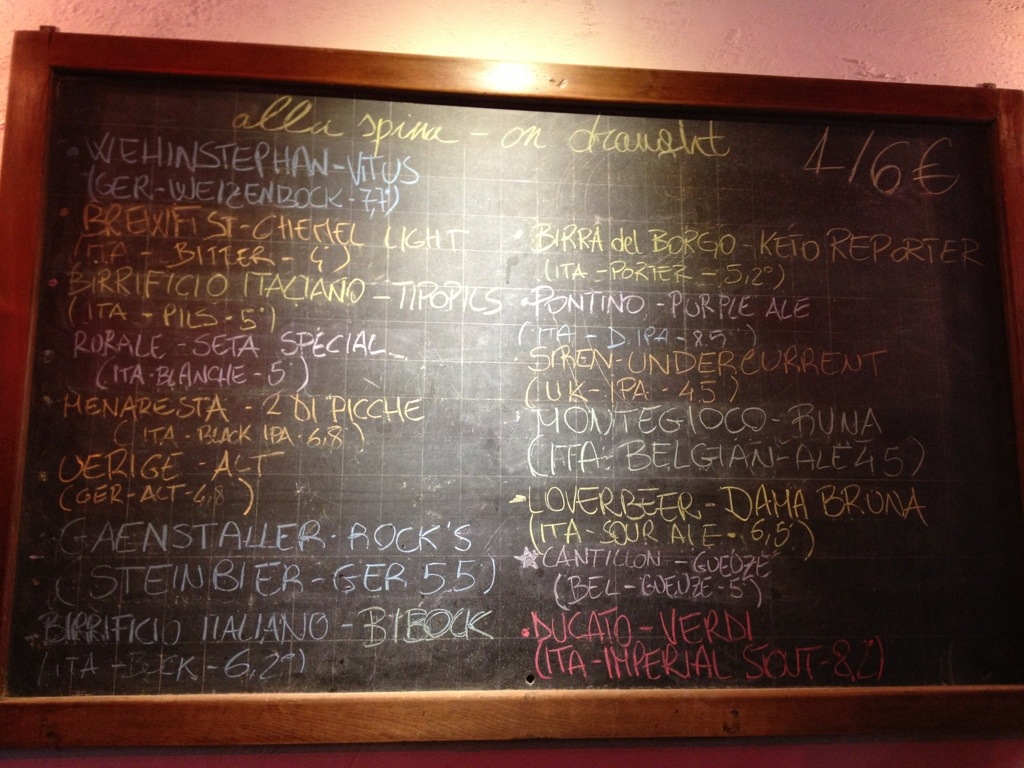 alla spina - on draught
4/6€
• WEHINSTEPHAN-VITUS
(GER-WEIZENBOCK-7,7)
• BREWFIST-CHEMEL LIGHT
(ITA - BITTER - 4)
BIRRIFICIO ITALIANO - TIPOPILS
(ITA - PILS - 5°)
RURALE - SETA SPECIAL
(ITA-BLANCHE-5)
MENARESTA - 2 DI PICCHE
(ITA-BLACK IPA-6,8)
UERIGE - ALT
(GER-ALT-4,8)
GAENSTALLER-ROCK'S
(STEINBIER-GER 5,5)
BIRRIFICIO ITALIANO - BIBOCK
(ITA - BOCK - 6,2°)
• BIRRA del BORGO-KETO REPORTER
(ITA - PORTER - 5,2°)
• PONTINO - PURPLE ALE
(ITA - D.IPA - 8,5°)
SIREN-UNDERCURRENT
(UK-IPA-4,5)
MONTEGIOCO-RUNA
(ITA-BELGIAN-ALE 4,5)
LOVERBEER-DAMA BRUNA
(ITA-SOUR ALE-6,5)
CANTILLON - GUEUZE
(BEL-GUEUZE-5°)
• DUCATO-VERDI
(ITA-IMPERIAL STOUT-8,2)